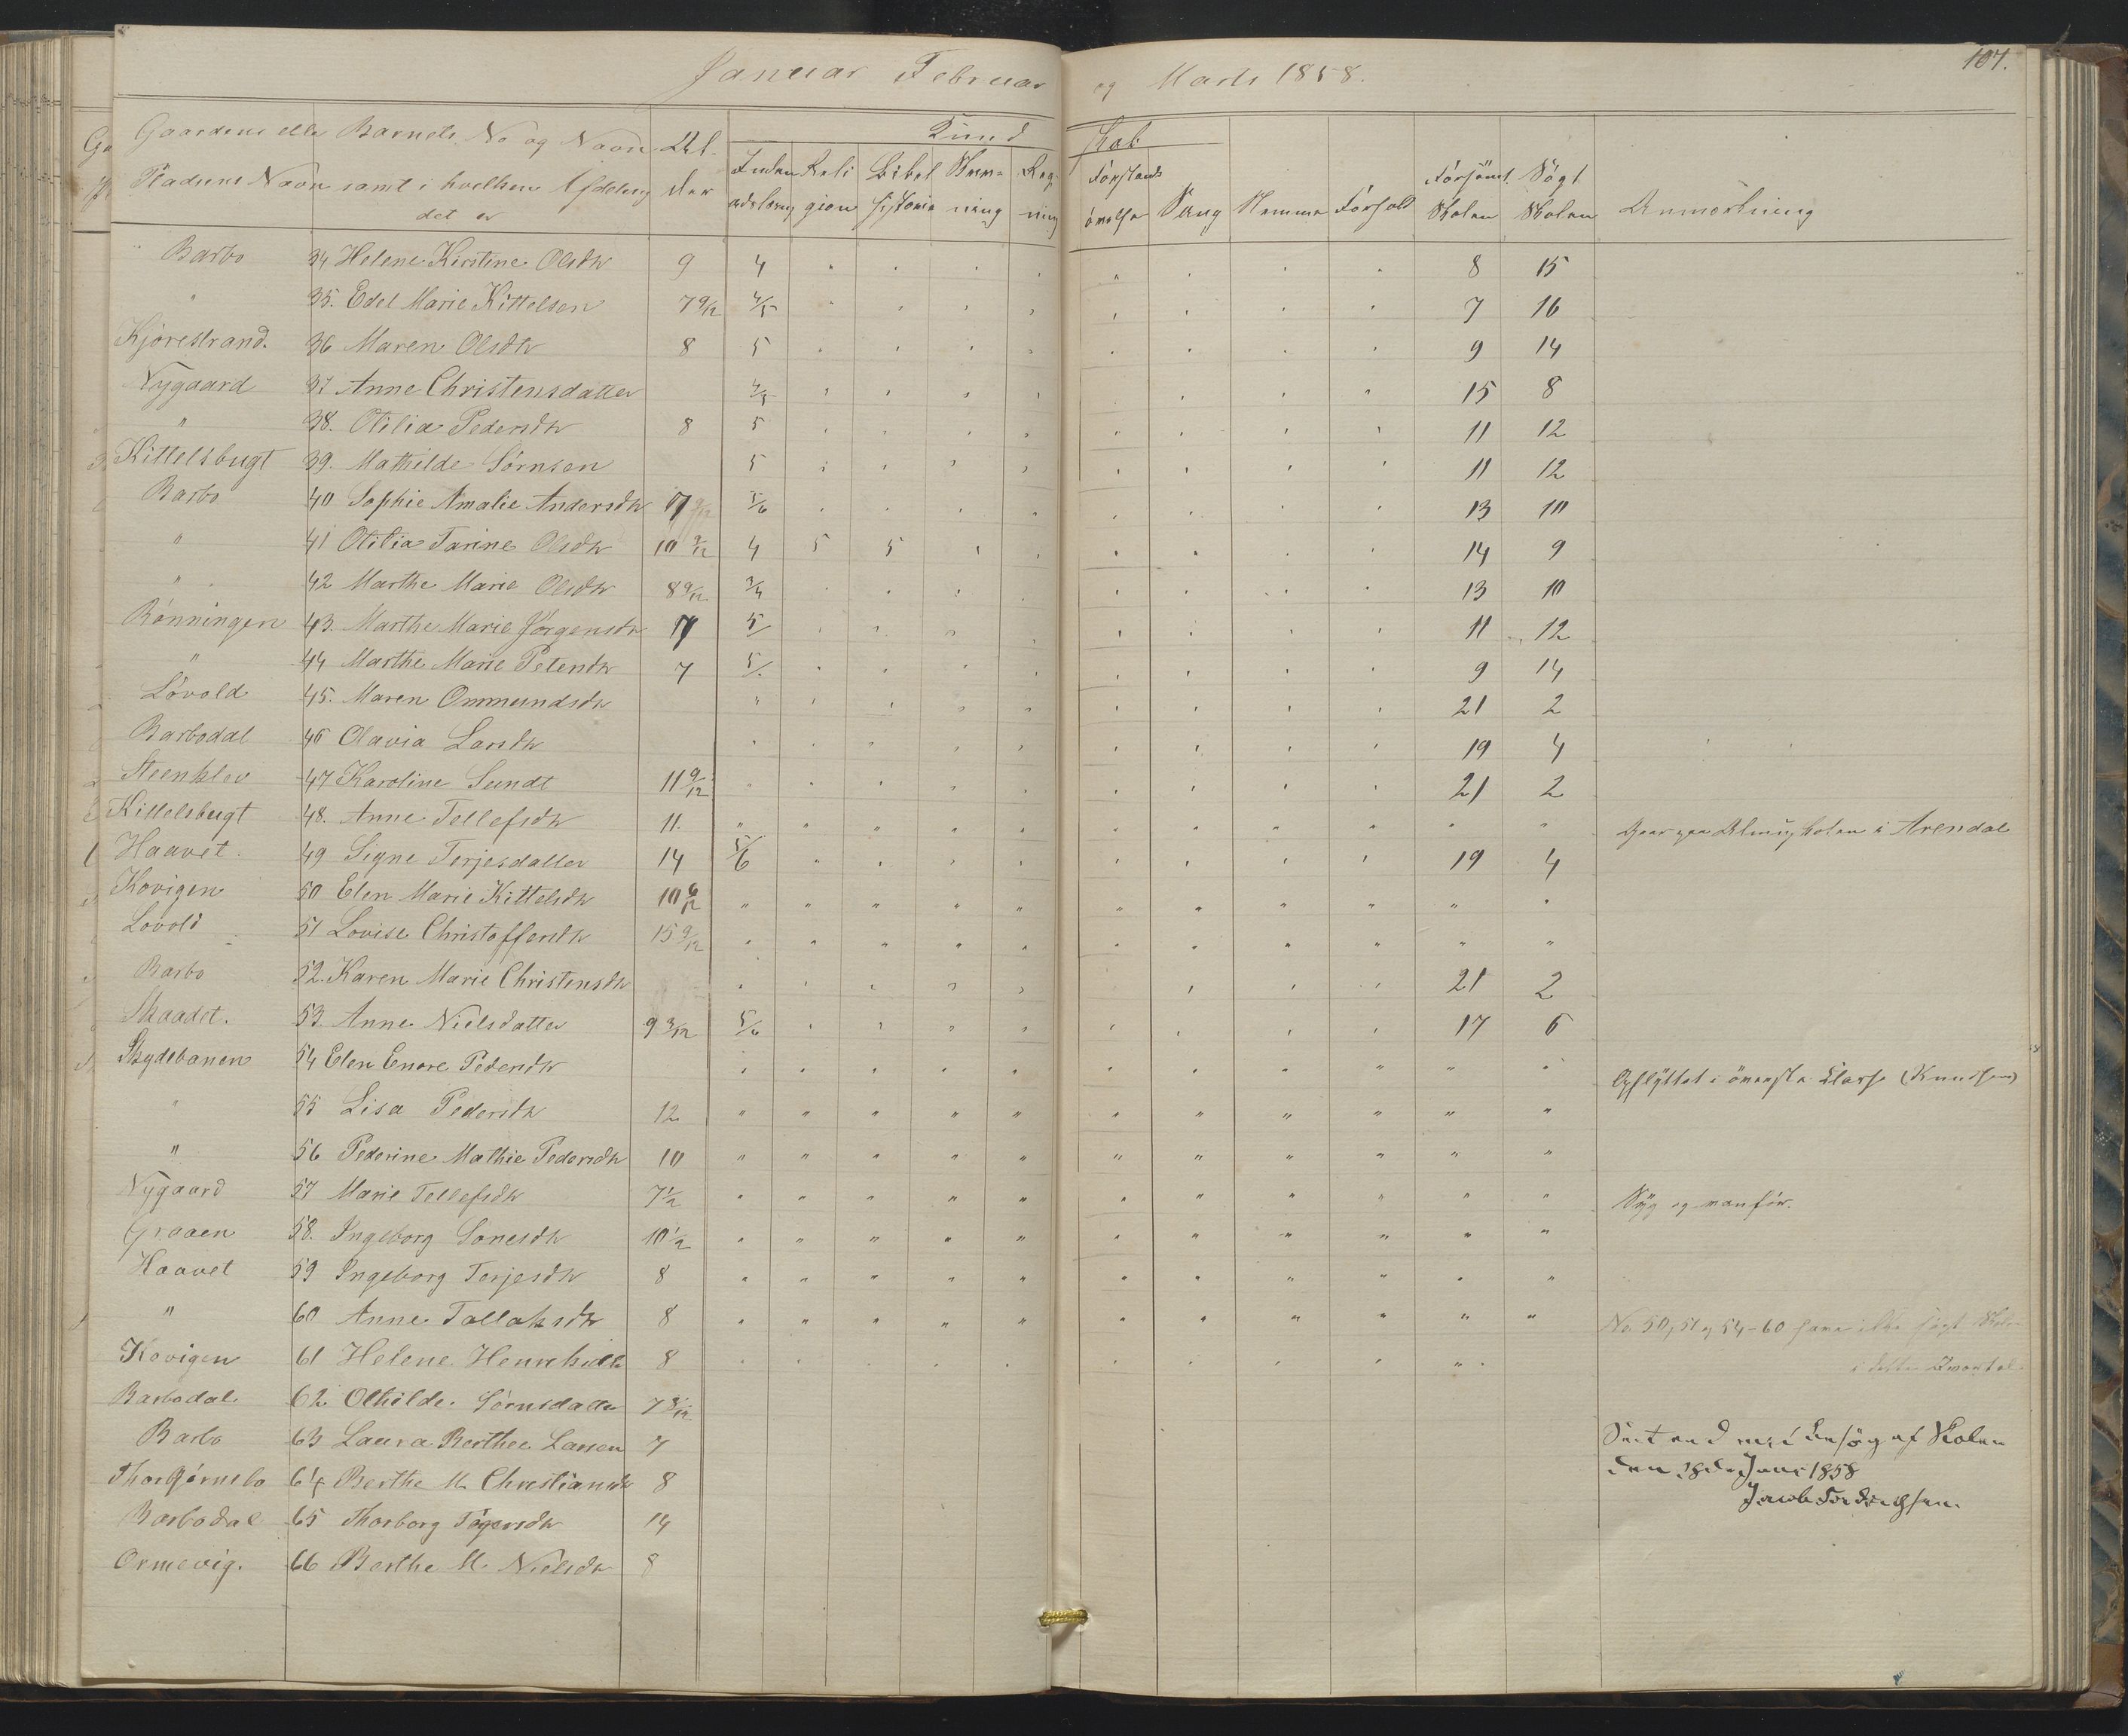 Januar Februar og Marts 1858. 107.
Gaardens eller Barnets No og Navn Al- Kund skab
Pladsens Navn samt i hvilken Afdeling der Inden Reli Bibel Skriv- Reg- Forstands Forsømt Søgt
det er adslæsng gion historie ning ning øvelse Sang Stemme Forhold Skolen Skolen Anmærkning
Barbo 34 Helene Kirstine Olsdtr 9 4 " " " " " " " " 8 15
" 35. Edel Marie Kittelsen 7 9/12 4/5 " " " " " " " " 7 16
Kjørestrand. 36 Maren Olsdtr 8 5 " " " " " " " " 9 14
Nygaard 37 Anne Christensdatter 4/5 " " " " " " " 15 8
" 38. Otilia Pedersdtr 8 5 " " " " " " " " 11 12
Kittelsbugt 39. Mathilde Sørnsen 5 " " " " " " " " 11 12
Barbo 40 Sophie Amalie Andersdtr 7 9/12 5/6 " " " " " " " " 13 10
" 41 Otilia Tarine Olsdtr 10 9/12 4 5 5 " " " " " " 14 9
" 42 Marthe Marie Olsdtr 8 9/12 3/4 " " " " " " " " 13 10
Rønningen 43. Marthe Marie Jørgensdtr 7 5/ " " " " " " " " 11 12
" 44 Marthe Marie Petersdtr 7 5/. " " " " " " " " 9 14
Løvold 45. Maren Ommundsdtr " " " " " " " " " 21 2
Barbodal 46 Olavia Larsdtr " " " " " " " " " 19 4
Steenklev 47 Karoline Sundt 11 9/12 " " " " " " " " " 21 2
Kittelsbugt 48. Anne Tellefsdtr 11. " " " " " " " " " " " Gaar paa Almuskolen i Arendal
Haavet 49 Signe Terjesdatter 14 5/6 " " " " " " " " 19 4
Kovigen 50 Elen Marie Kittelsdtr 10 6/12 " " " " " " " " " " "
Lovold 51 Lovise Christoffersdtr 15 9/12 " " " " " " " " " " "
Barbo 52. Karen Marie Christensdtr " " " " " " " " 21 2
Skaadet. 53. Anne Nielsdatter 9 3/12 5/6 " " " " " " " " 17 6
Skydebanen 54 Elen Enore Pedersdtr " " " " " " " " " " " Opflyttet i øverste Klasse (Knudsen)
" 55 Lisa Pedersdtr 12 " " " " " " " " " " "
" 56 Pederine Mathie Pedersdtr 10 " " " " " " " " " " "
Nygaard 57 Marie Tellefsdtr 7 1/2 " " " " " " " " " " " Syg og vanfør.
Graaen 58. Ingeborg Sonesdtr 10 1/2 " " " " " " " " " " "
Haavet 59 Ingeborg Terjesdtr 8 " " " " " " " " " " "
" 60 Anne Tallaksdtr 8 " " " " " " " " " " " No 50, 51 og 54-60 have ikke søgt Skolen
Kovigen 61 Helene Henrikssdtr 8 " " " " " " " " " i dette Qvartal.
Barbodal 62 Othilde Sørnsdatter 7 3/12
Barbo 63 Laura Berthee Larsen 7 Seet ved mit Besøg af Skolen
Thorbjørnsbo 64 Berthe M. Christiansdtr 8 den 28de Juni 1858
Barbodal 65 Thorborg Tøgersdtr 14
Ormevig. 66 Berthe M. Nielsdtr 8